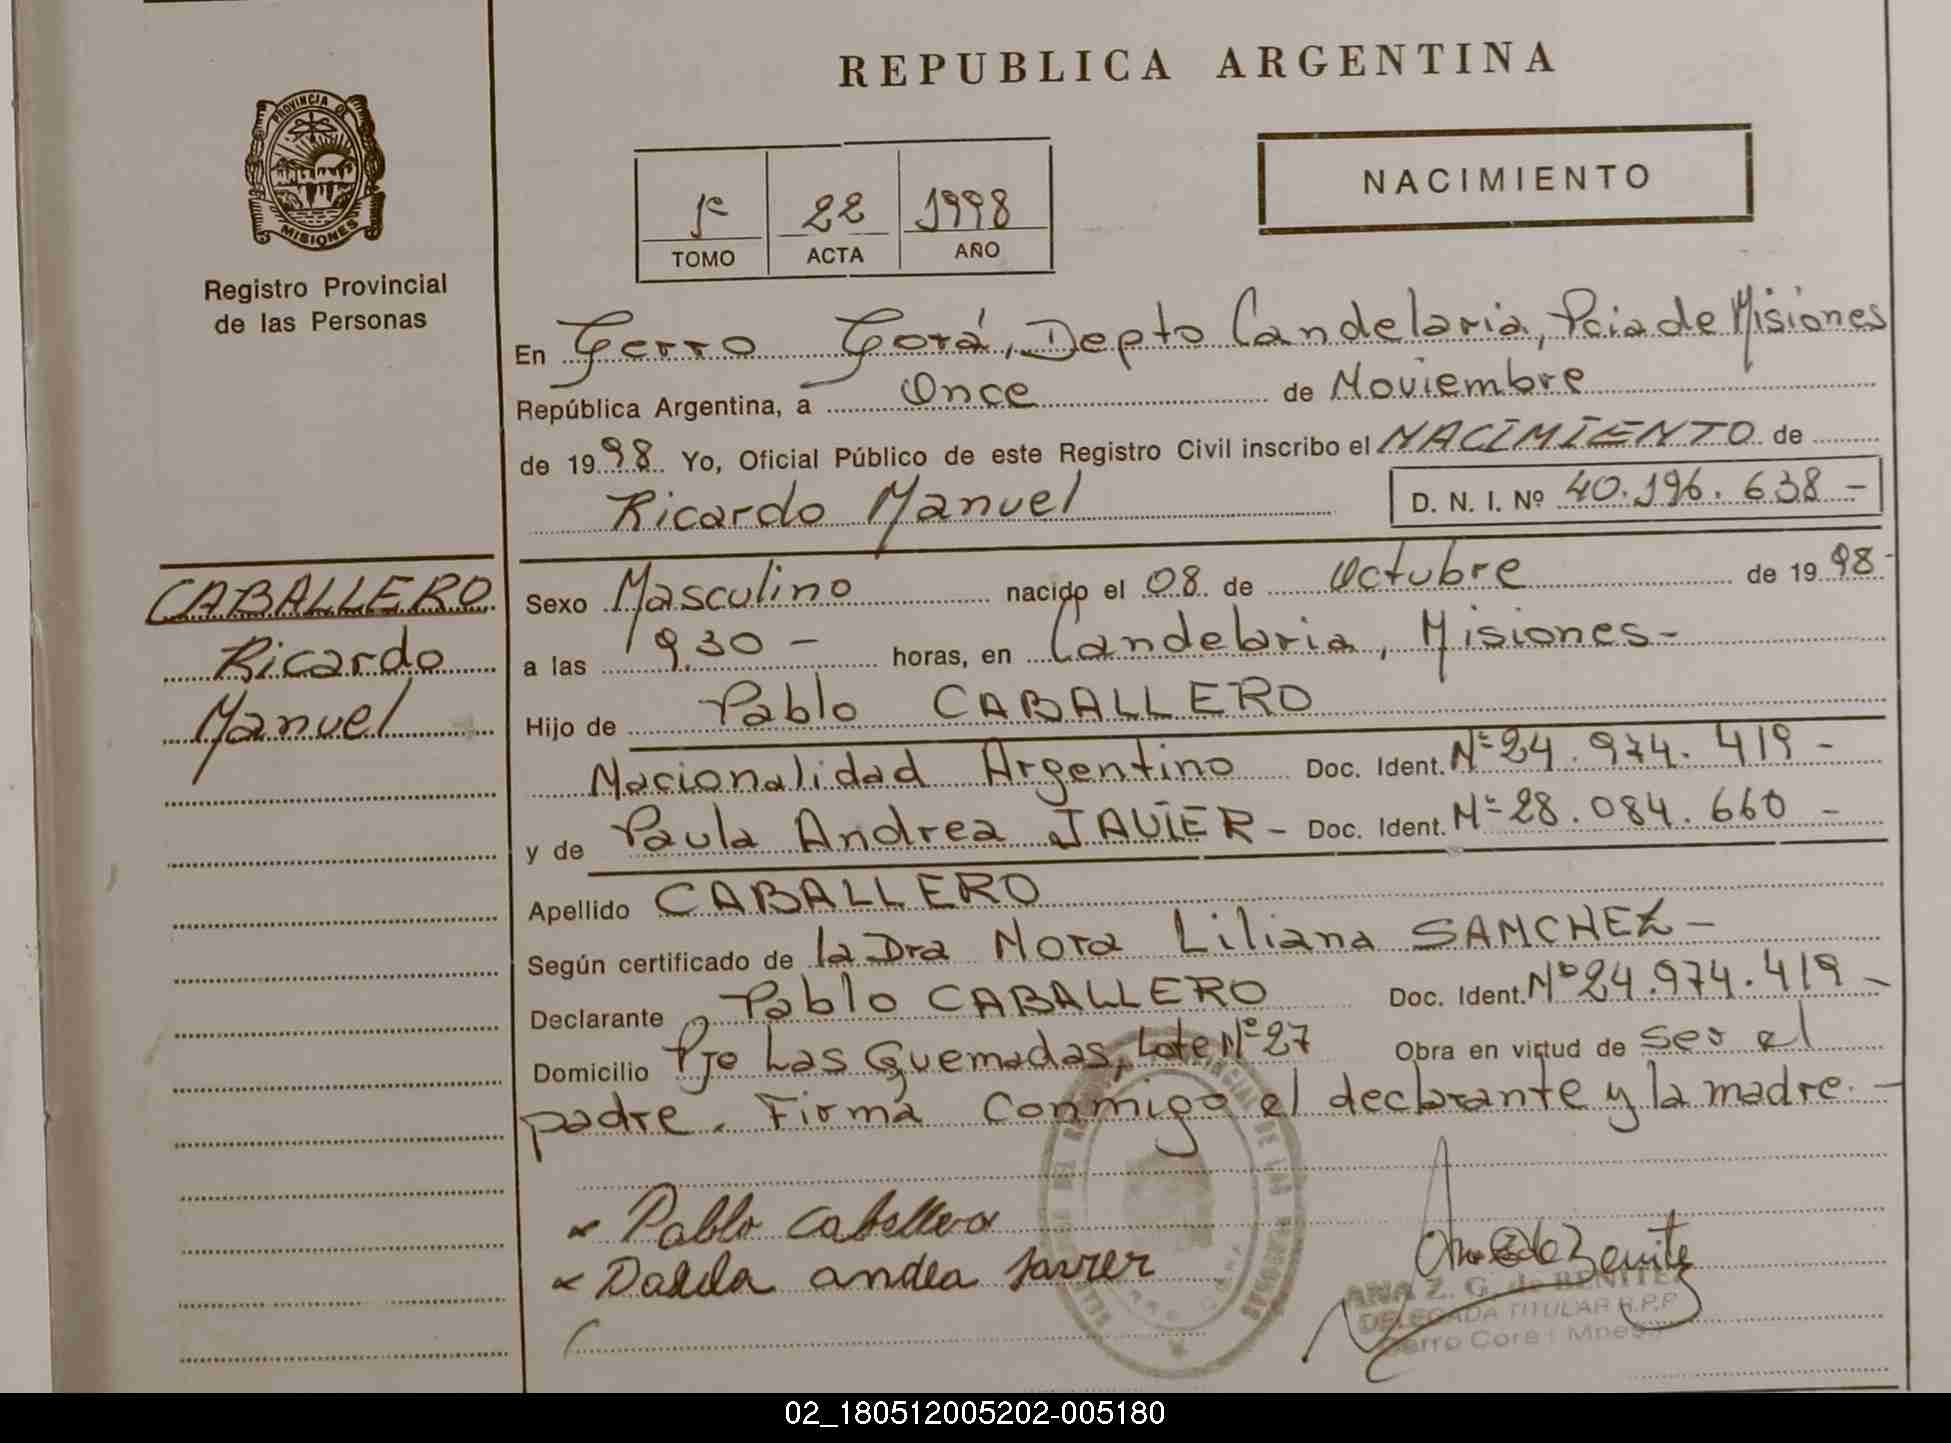 REPUBLICA ARGENTINA
PROVINCIA DE
MISIONES
Registro Provincial
de las Personas
1º 22 1998
TOMO ACTA AÑO
NACIMIENTO
En Cerro Corá, Depto Candelaria, Pcia de Misiones
República Argentina, a Once de Noviembre
de 1998 Yo, Oficial Público de este Registro Civil inscribo el NACIMIENTO de
Ricardo Manuel D. N. I. Nº 40.196.638 -
CABALLERO
Ricardo
Manuel
Sexo Masculino nacido el 08 de Octubre de 1998-
a las 9.30 - horas, en Candelaria, Misiones-
Hijo de Pablo CABALLERO
Nacionalidad Argentino Doc. Ident. Nº 24.974.419 -
y de Paula Andrea JAVIER - Doc. Ident. Nº 28.084.660 -
Apellido CABALLERO
Según certificado de la Dra Nora Liliana SANCHEZ -
Declarante Pablo CABALLERO Doc. Ident. Nº 24.974.419 -
Domicilio Pje Las Quemadas, Lote Nº 27 Obra en virtud de ser el
padre. Firma conmigo el declarante y la madre. -
Pablo Caballero
andea Javier
ANA Z. G. de BENITEZ
DELEGADA TITULAR R.P.P.
Cerro Corá - Mnes.
02_180512005202-005180